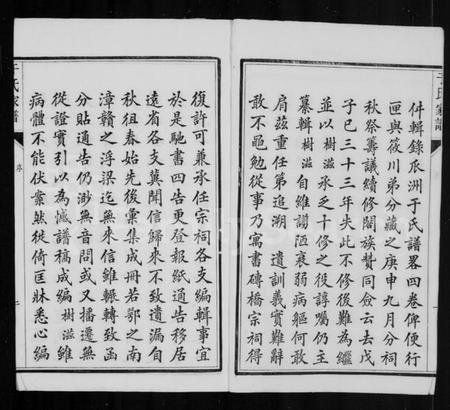 于氏家譜
件輯錄瓜洲于氏譜畧四卷俾便行
匣與筱川弟分藏之庚申九月分祠
秋祭籌議續修閤族贊同僉云去戊
子已三十三年失此不修後難為繼
並以樹滋承乏十修之役諄囑仍主
纂輯樹滋自維謭陋衰弱病軀何敢
肩茲重任第追溯 遺訓義實難辭
敢不黽勉從事乃寓書磚橋宗祠得
復許可兼承任宗祠各支編輯事宜
於是馳書四告更登報紙通告移居
遠省各支冀聞信歸來不致遺漏自
秋徂春始先後彙集成冊若鄂之南
漳贛之浮梁迄無來信雖輾轉致函
分貼通告仍渺無音問或又播遷無
從證實引以為憾譜稿成編樹滋雖
病體不能伏案然徙倚匡牀悉心編
于氏家譜
序
二